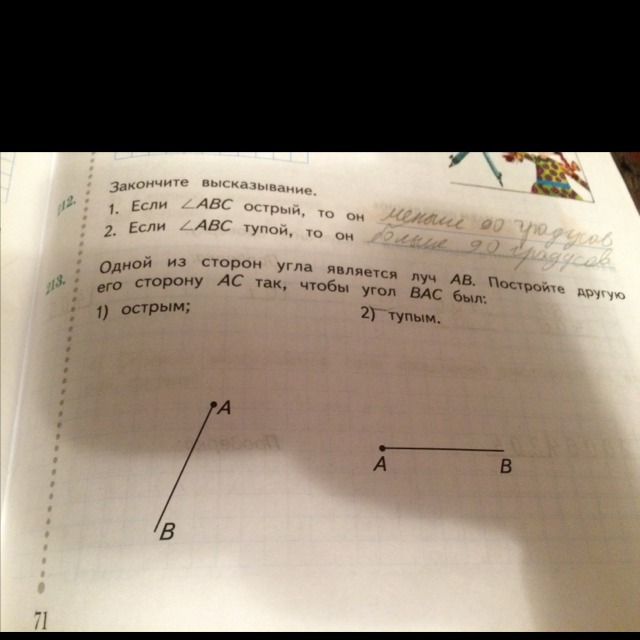 Закончите высказывание.
212.
1. Если ∠ABC острый, то он меньше 90 градусов
2. Если ∠ABC тупой, то он больше 90 градусов
213.
Одной из сторон угла является луч AB. Постройте другую
его сторону AC так, чтобы угол BAC был:
1) острым; 2) тупым.
A
A B
B
71